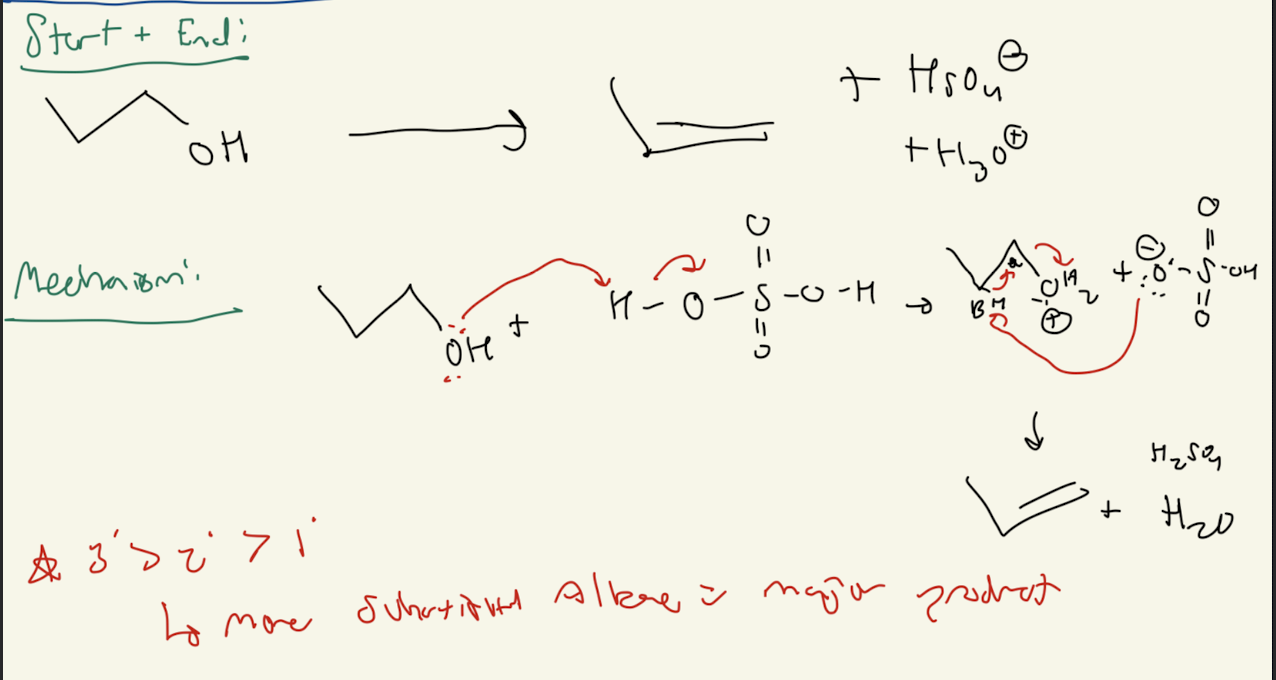 Start + End:
OH
+ HSO4⊖
+ H3O⊕
Mechanism:
OH +
H - O - S - O - H
O
O
B H
α
OH2
⊕
+ ⊖ :O - S - OH
O
O
H2SO4
+ H2O
☆ 3° > 2° > 1°
↳ more substituted Alkene = major product